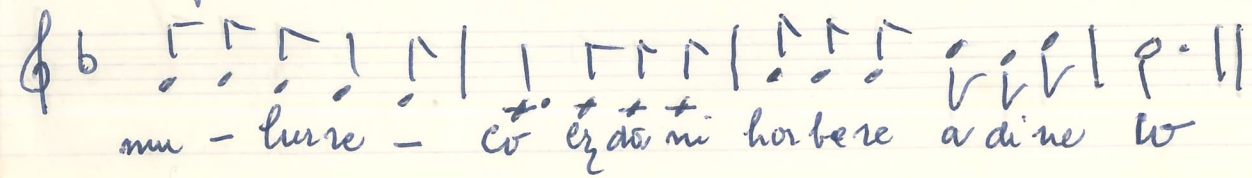 mu - lurre - co ez da ni hor bere a di ne ko